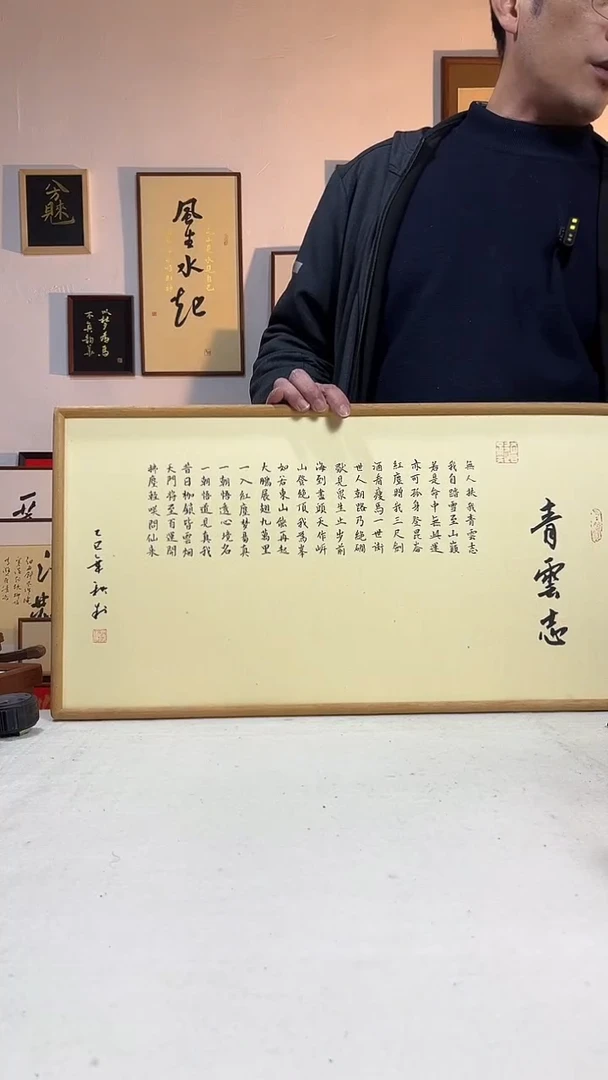 風生水起
以夢為馬
不負韶華
青雲志
無人扶我青雲志
我自踏雪至山巔
若是命中無此運
亦可孤身登昆崙
紅塵贈我三尺劍
酒肴瘦馬一世街
世人朝路乃絕
獸見眾生止步前
海到盡頭天作岸
山登絕頂我為峯
如若東山能再起
大鵬展翅九萬里
一入紅塵梦易真
一朝悟透心境名
一朝悟道見真我
昔日枷鎖皆雲烟
天門將至百運
問仙來
乙巳年秋